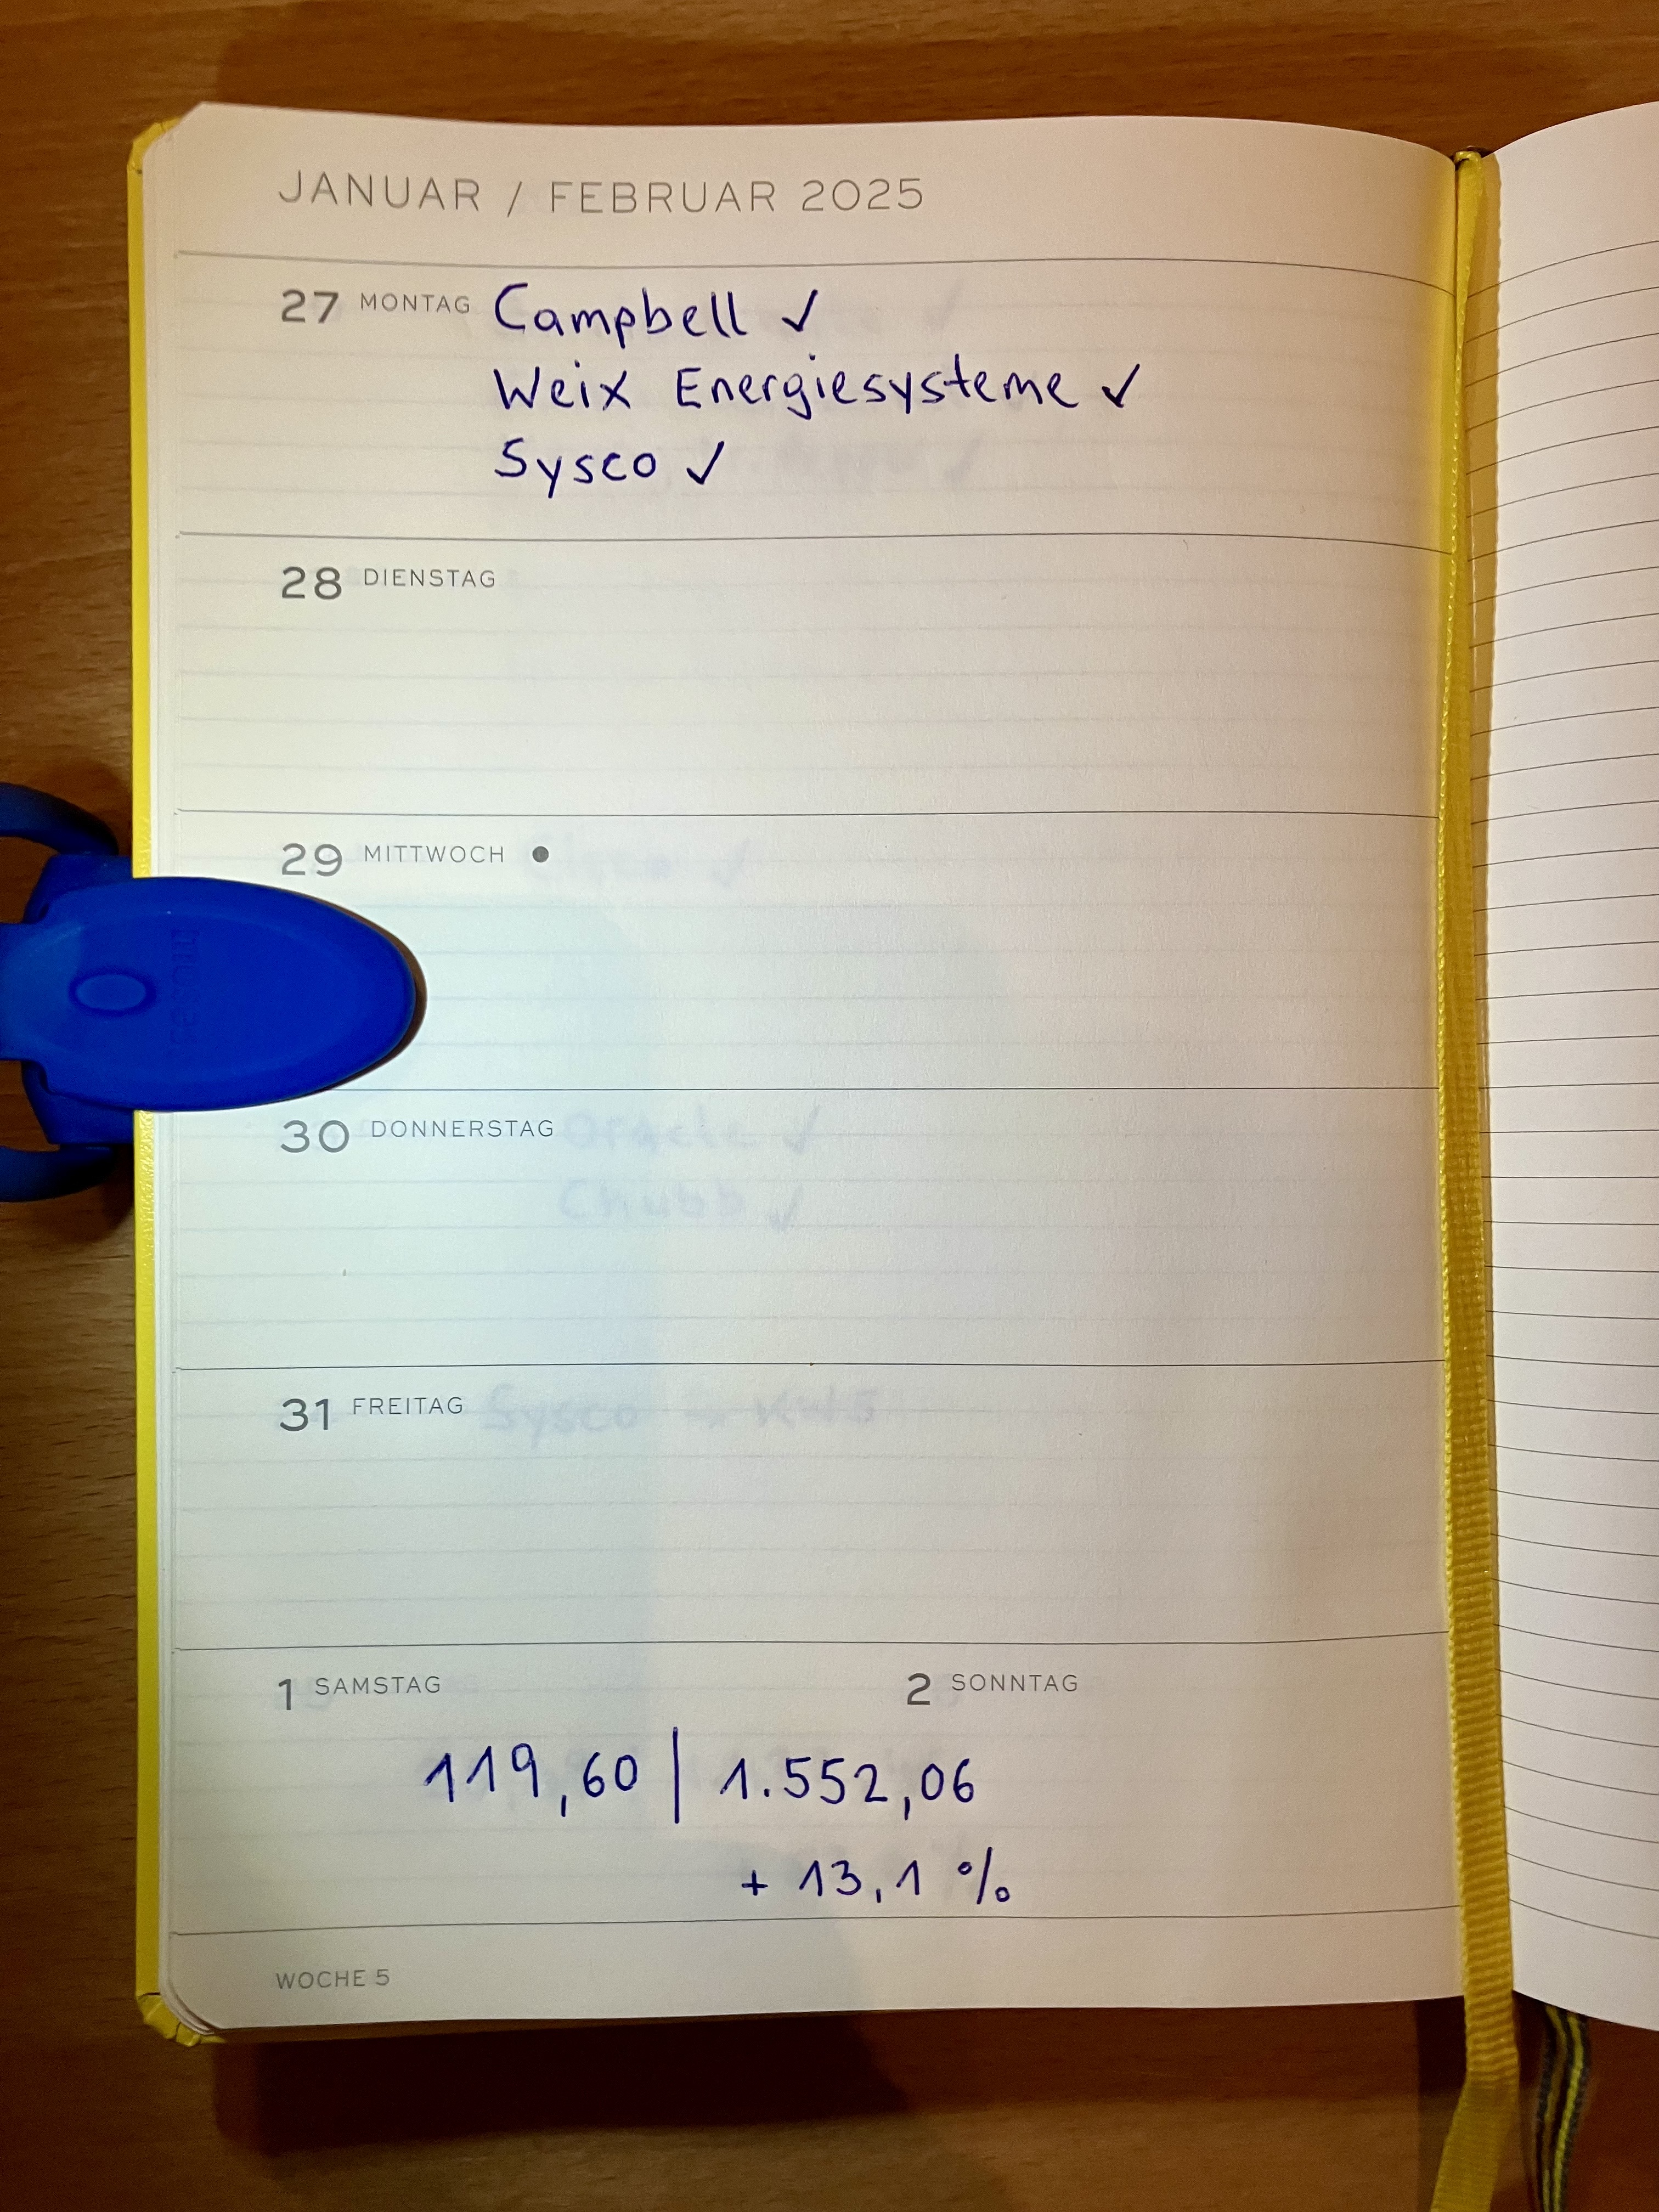 JANUAR / FEBRUAR 2025
27 MONTAG Campbell ✓
Weix Energiesysteme ✓
Sysco ✓
28 DIENSTAG
29 MITTWOCH ●
30 DONNERSTAG
Oracle ✓
Chubb ✓
31 FREITAG
Sysco → KW5
1 SAMSTAG 2 SONNTAG
119,60 | 1.552,06
+ 13,1 %
WOCHE 5